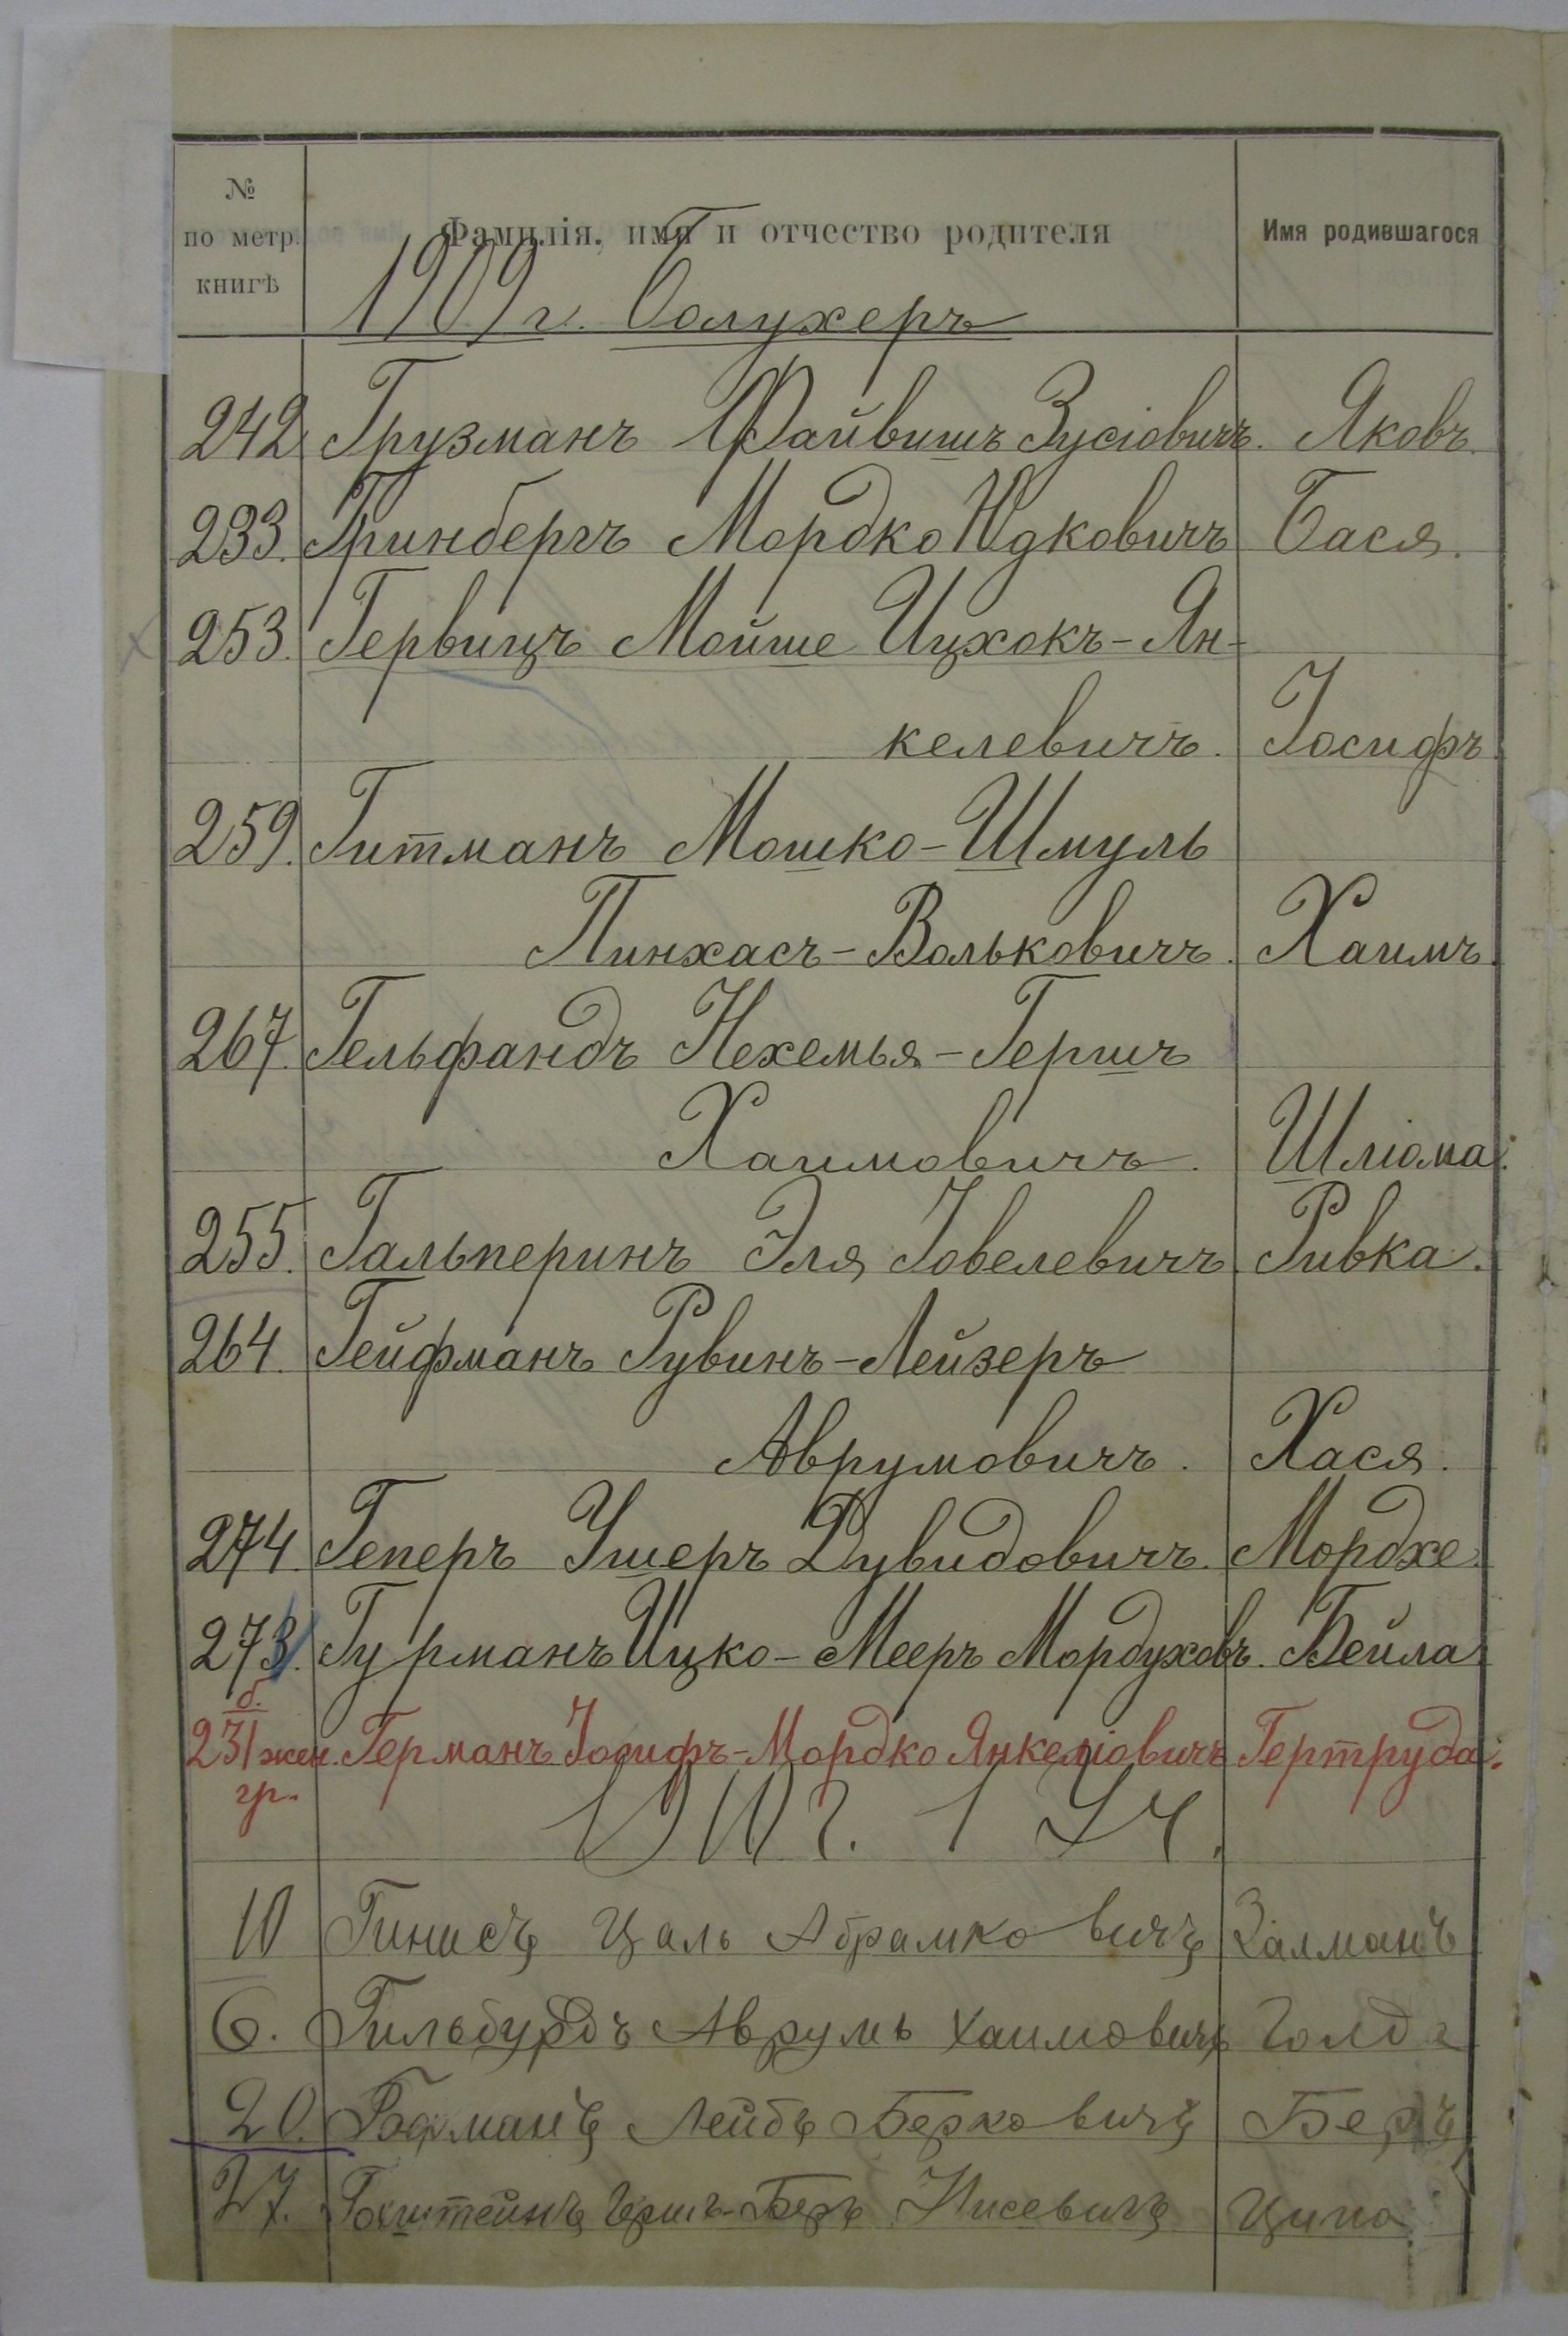 № по метр. книгѣ
Фамилія, имя и отчество родителя
Имя родившагося
1909 г. Солухеръ
242 Грузманъ Файвишъ Зусіовичъ. Яковъ.
233. Гринбергъ Мордко Юдковичъ Бася.
253. Гервицъ Мойше Ицхокъ-Ян-
келевичъ. Іосифъ
259. Гитманъ Мошко-Шмуль
Пинхасъ-Вольковичъ. Хаимъ.
267. Гельфандъ Нехемья-Гершъ
Хаимовичъ. Шліома.
255. Гальперинъ Эля Іовелевичъ Ривка.
264. Гейфманъ Рувинъ-Лейзеръ
Аврумовичъ. Хася.
274. Геперъ Ушеръ Дувидовичъ. Мордхе.
273. Гурманъ Ицко-Мееръ Мордуховъ. Бейла
б.
231 жен. Германъ Іосифъ-Мордко Янкеліовичъ Гертруда.
гр.
1910 г. 1
10 Гинисъ Цаль Абрамковичъ Залманъ
6. Гильбурдъ Аврумъ Хаимовичъ Голда
20. Лейбъ Берковичъ Беръ
27. Гершъ-Беръ Нисевичъ Ципа